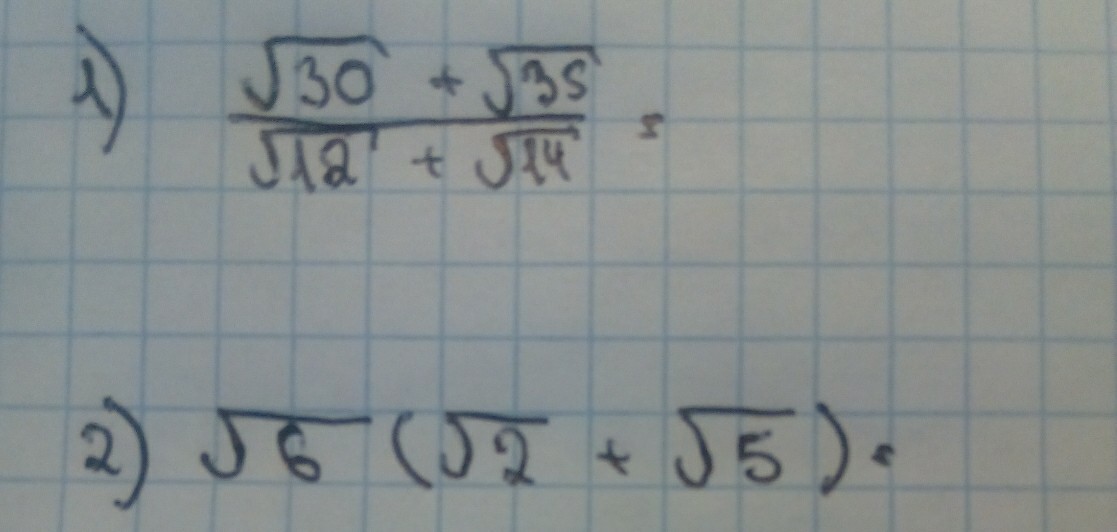 1) (√30 + √35)/(√12 + √14) =
2) √6 (√2 + √5) =